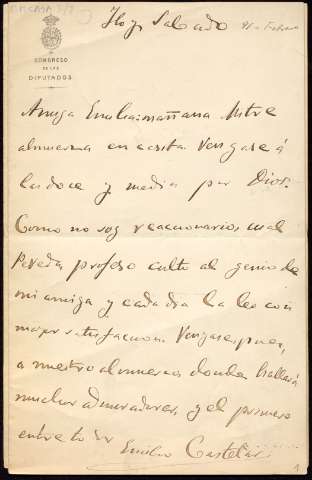 CONGRESO
DE LOS
DIPUTADOS
Hoy Sabado
Amiga Emilia: mañana Mitre
almuerza en casita. Vengase á
las doce y media por Dios.
Como no soy reaccionario, cual
Pereda, profeso culto al genio de
mi amiga y cada dia la leo con
mayor satisfaccion. Vengase, pues,
a nuestro almuerzo donde hallará
muchos admiradores y el primero
entre todos
Emilio Castelar
1